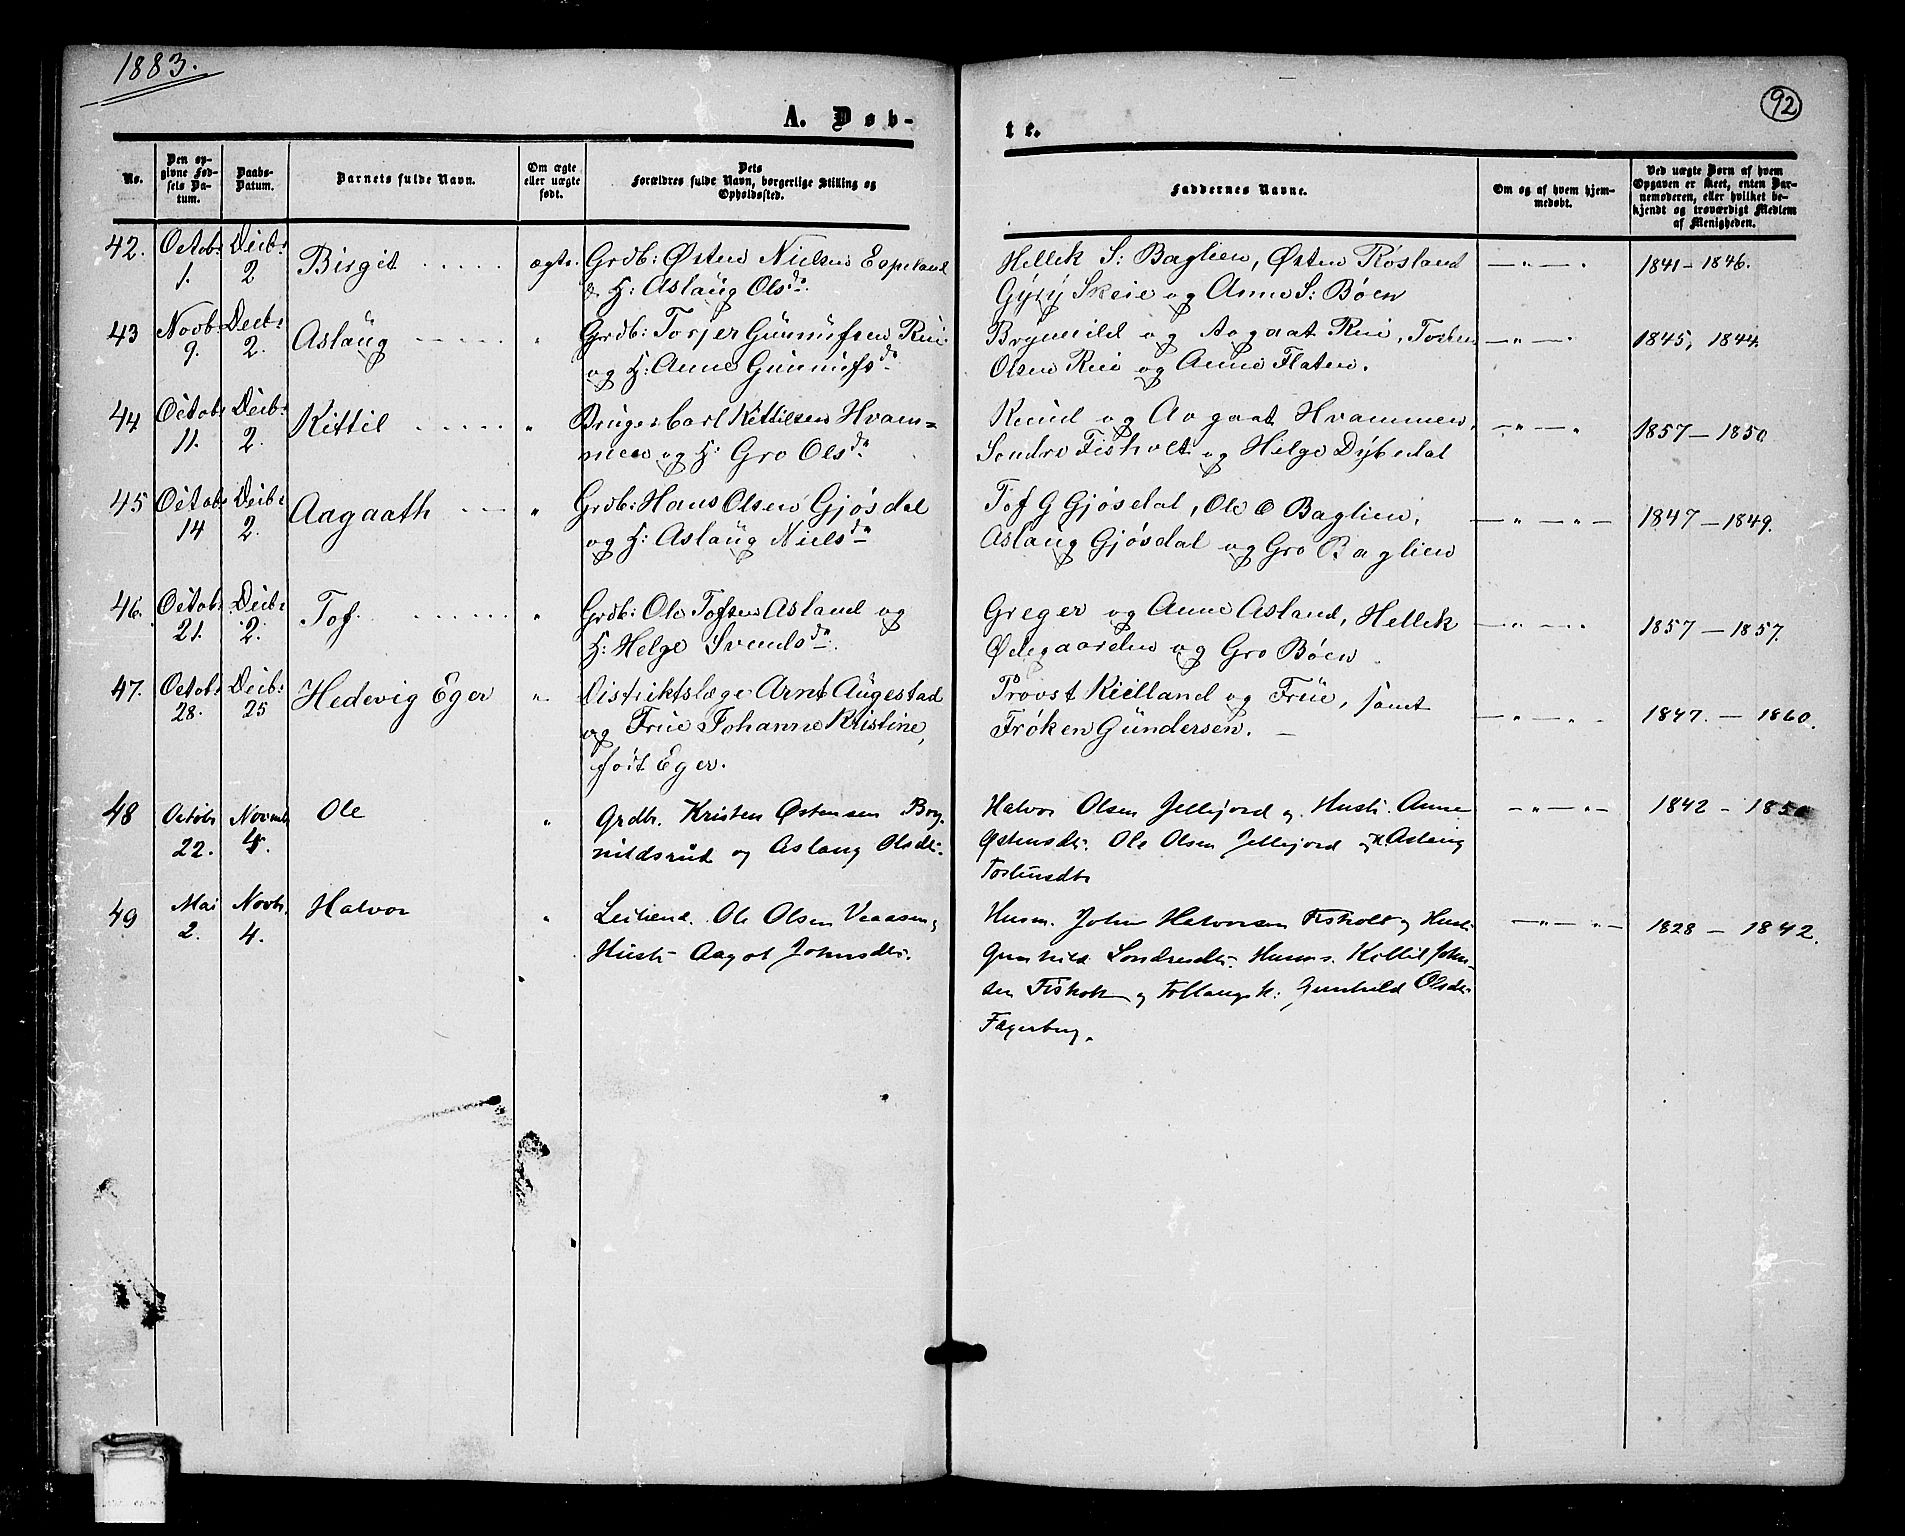 1883.
92
A. Døb-
te.
No.
Den op-
givne Fød-
sels Da-
tum.
Daabs-
Datum.
Barnets fulde Navn.
Om ægte
eller uægte
født.
Dets
Forældres fulde Navn, borgerlige Stilling og
Opholdssted.
Faddernes Navne.
Om og af hvem hjem-
medøbt.
Ved uægte Born af hvem
Opgaven er skeet, enten Bar-
nemoderen, eller hvilket be-
kjendt og troværdigt Medlem
af Menigheden.
42. Octob: 1. Decb: 2 Birgit ægte. Grdb: Østen Nielsen Espeland
& H: Aslaug Olsda.
Hellik S: Baglien, Østen Røsland
Gyrý Skeie og Anne S: Bøen
1841 - 1846.
43 Novb 9. Decb: 2. Aslaug " Grdb: Torjer Gunnufsen Rui
og H: Anne Gunnufsda.
Brynnild og Aagaat Rui, Torben
Olsen Rui og Anne Flaten.
1845, 1844.
44 Octob: 11. Decb: 2. Kittil " Bruger Carl Kittilsen Hvam=
men og H: Gro Olsda.
Knud og Aagaat Hvammen,
Sondre Fisholt og Helge Dybedal
1857 - 1850
45 Octob: 14 Decb: 2. Aagaath " Grdb: Hans Olsen Gjøsdal
og H: Aslaug Nielsda
Tof G Gjøsdal, Ole O Baglien,
Aslaug Gjøsdal og Gro Baglien
1847 - 1849.
46. Octob: 21. Decb: 2. Tof. " Grdb: Ole Tofsen Asland og
H: Helge Svendsda.
Greger og Anne Asland, Hellik
Ødegaarden og Gro Bøen
1857 - 1857.
47. Octob: 28. Decb: 25 Hedevig Eger " Distriktslæge Arnt Augestad
og Frue Johanne Kristine,
født Eger.
Provst Kielland og Frue, samt
Frøken Gundersen. -
1847. - 1860.
48 Octobr 22. Novemb 4. Ole " Grdbr. Kristen Østensen Bryn-
nildsrud og Aslaug Olsdtr.
Halvor Olsen Jellejord og Hustr. Anne
Østensdtr. Ole Olsen Jellejord og H Aslaug
Torstensdtr
1842 - 1850
49 Mai 2. Novbr. 4. Halvor " Leilend. Ole Olsen Veaasen,
Hustr Aagot Johnsdtr.
Husm. John Halvorsen Fisholt og Hustr.
Gunhild Sondresdtr. Husm s. Kittil John-
sen Fisholt og Gunhild Olsdtr
Fagerberg.
1828 - 1842.